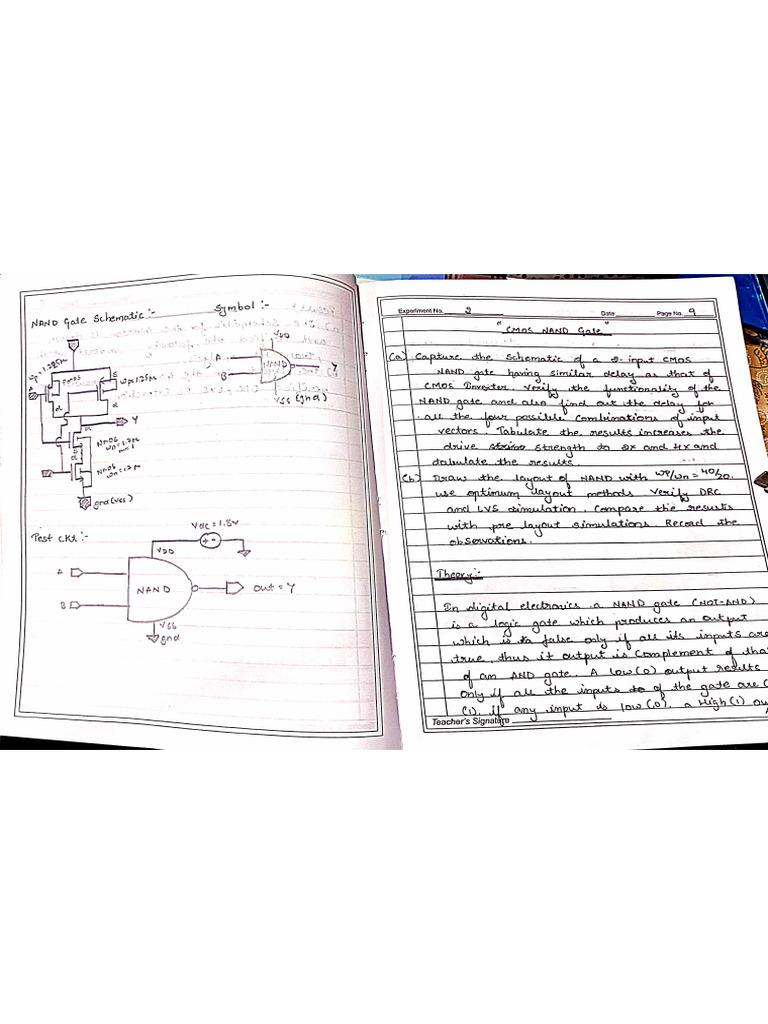 NAND Gate Schematic :-
Symbol :-
VDD
A
B
NAND
Y
VSS (gnd)
PMOS
S
d
d
Y
NMOS
NMOS
gnd (VSS)
Test Ckt :-
Vdc = 1.8v
VDD
A
B
NAND
out = Y
VSS
gnd
Experiment No. 2 Date Page No. 9
" CMOS NAND Gate"
(a) Capture the schematic of a 2-input CMOS
NAND gate having similar delay as that of
CMOS Inverter. Verify the functionality of the
NAND gate and also find out the delay for
all the four possible combinations of input
vectors. Tabulate the results increases the
drive strength to 2x and 4x and
tabulate the results.
(b) Draw the layout of NAND with Wp/Wn = 40/20.
use optimum layout methods. Verify DRC
and LVS simulation. Compare the results
with pre layout simulations. Record the
observations.
Theory:-
In digital electronics a NAND gate (NOT-AND)
is a logic gate which produces an output
which is false only if all its inputs are
true, thus it output is Complement of that
of an AND gate. A low(0) output results
only if all the inputs to of the gate are
(1), if any input is low(0), a High(1)
Teacher's Signature